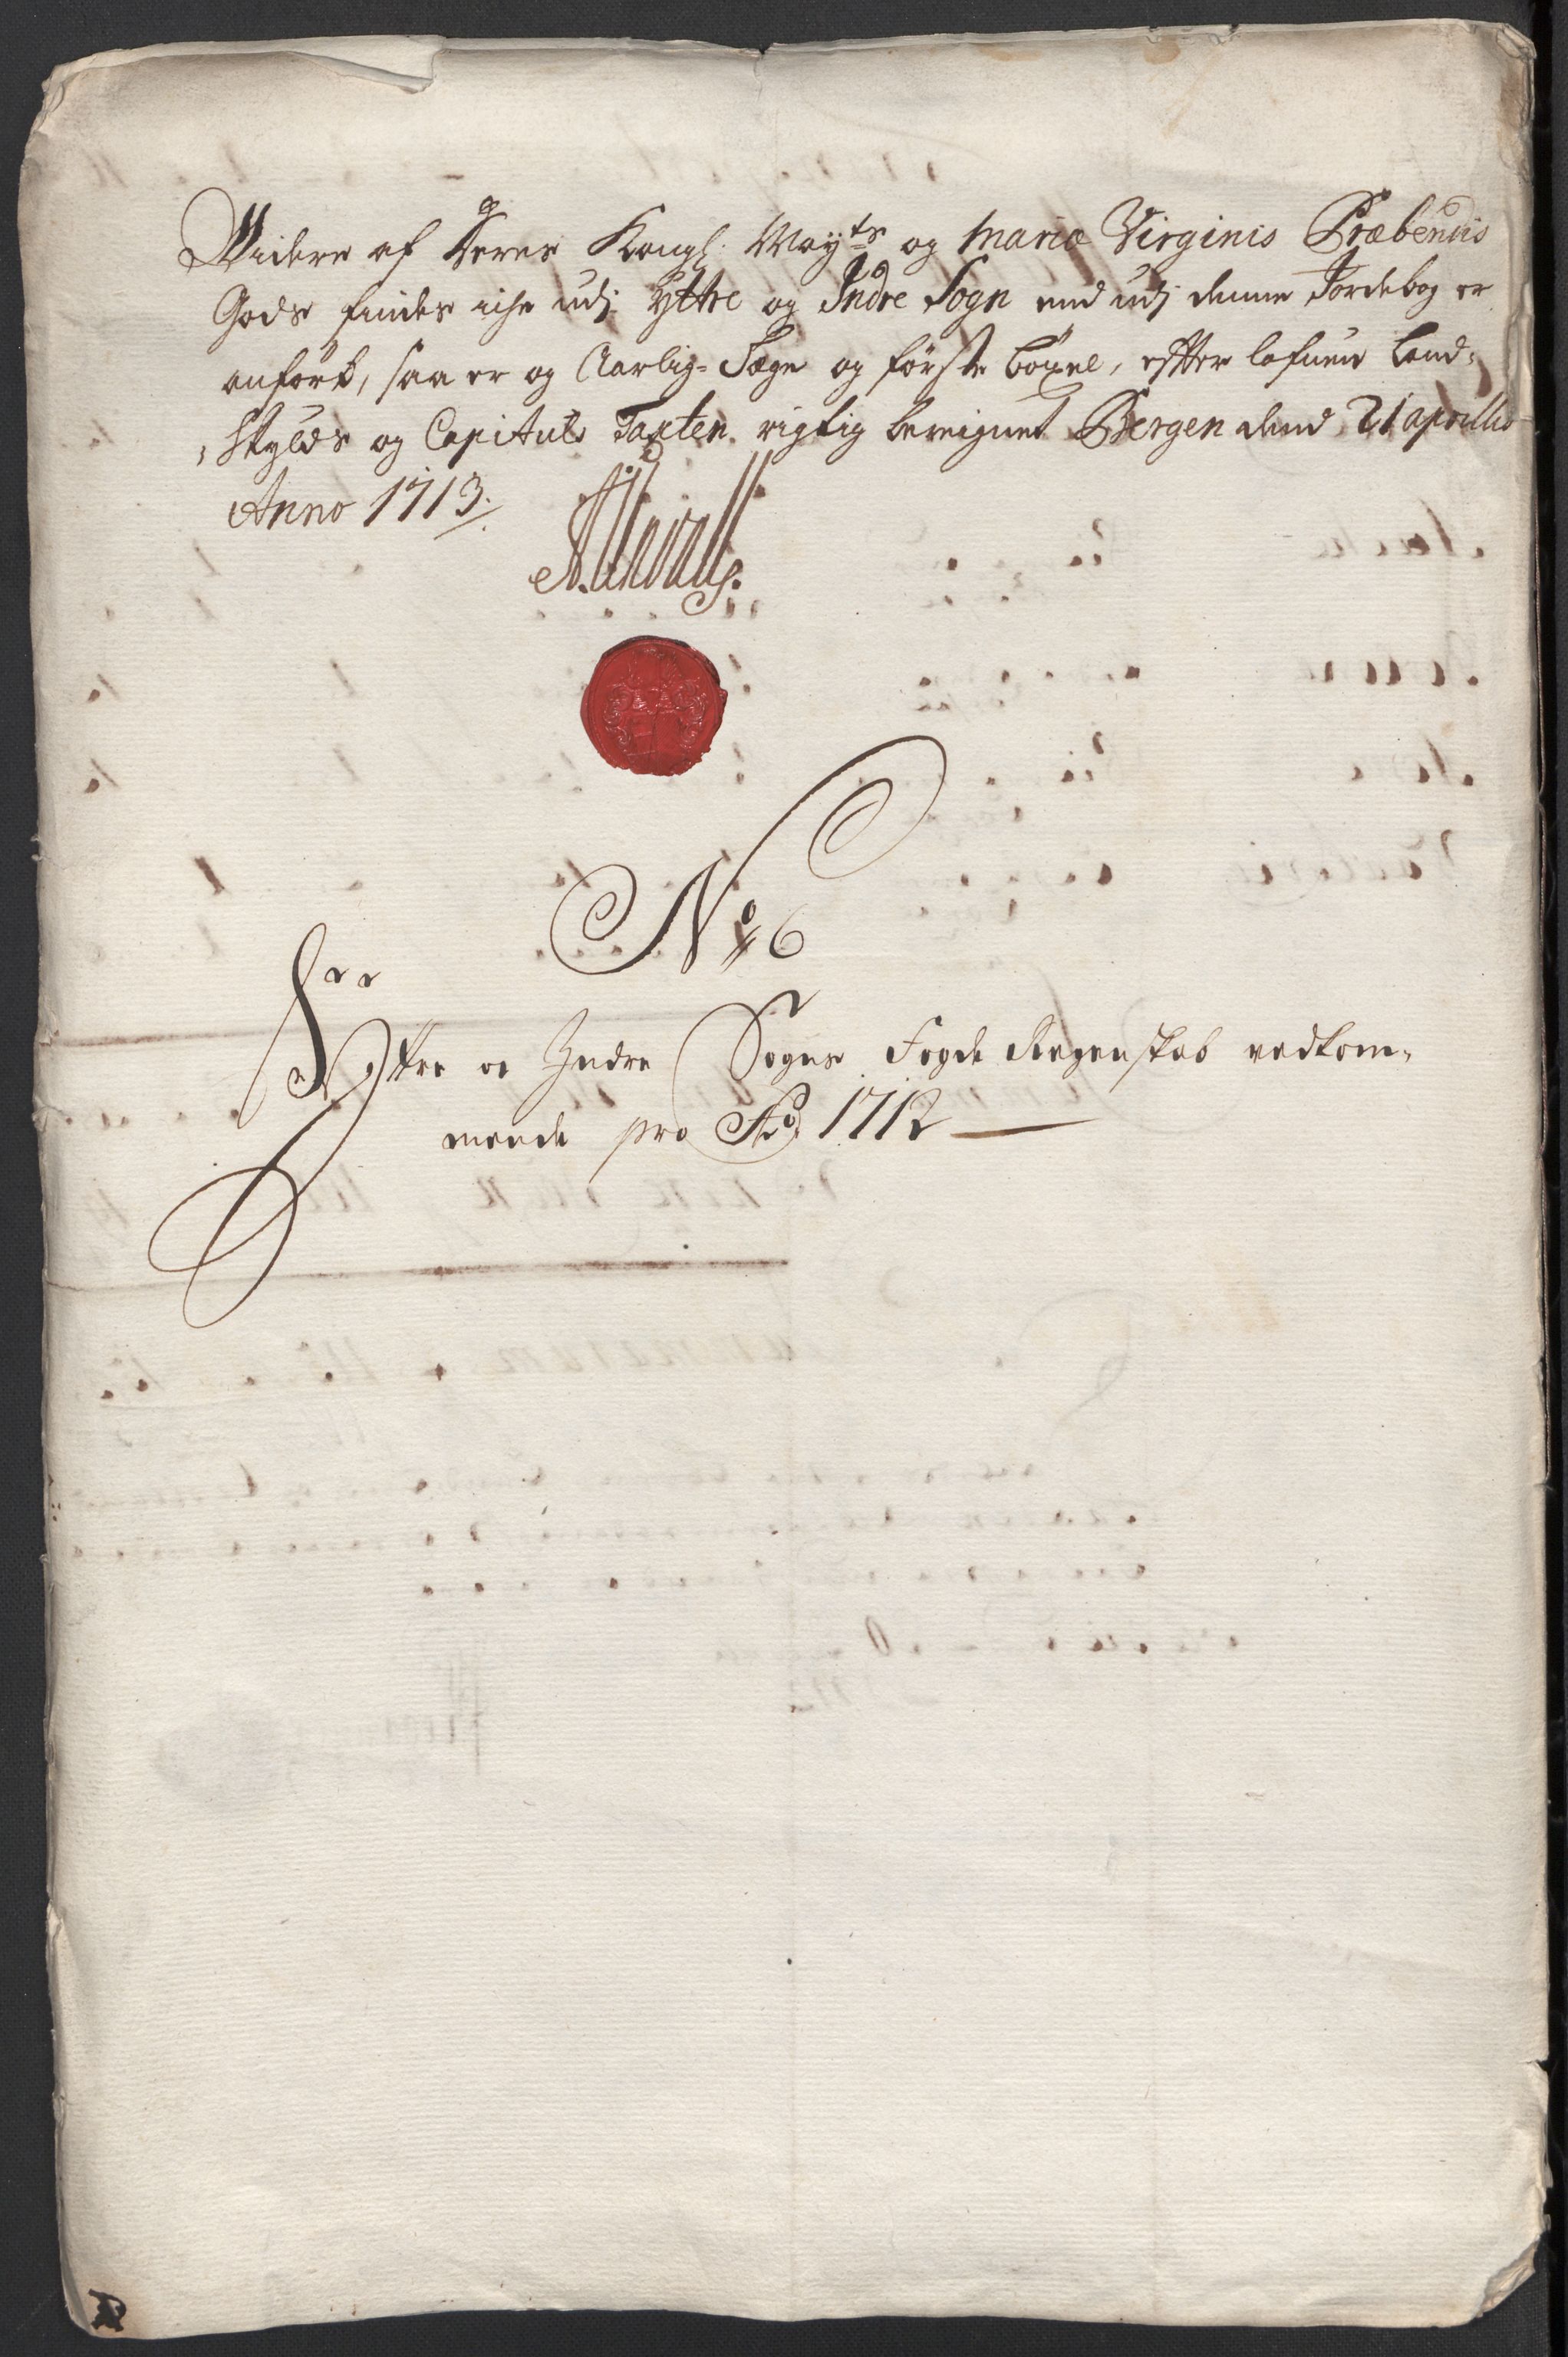 Widere af Deres Kongl. Mayts og Mariæ Virginis Præbendis
Gods findes iche udj Yttre og Indre Sogn end udj denne Jordebog er
anført, saa er og Aarlig= Tæge og første böxel, efter lofuens Land=
skylds og Capituls Taxten rigtig beregnet Bergen dend 21 aprillis
Anno 1713.
No 6
Yttre og Indre Sogns Fogde Regenskab vedkom=
mende pro Ao 1712